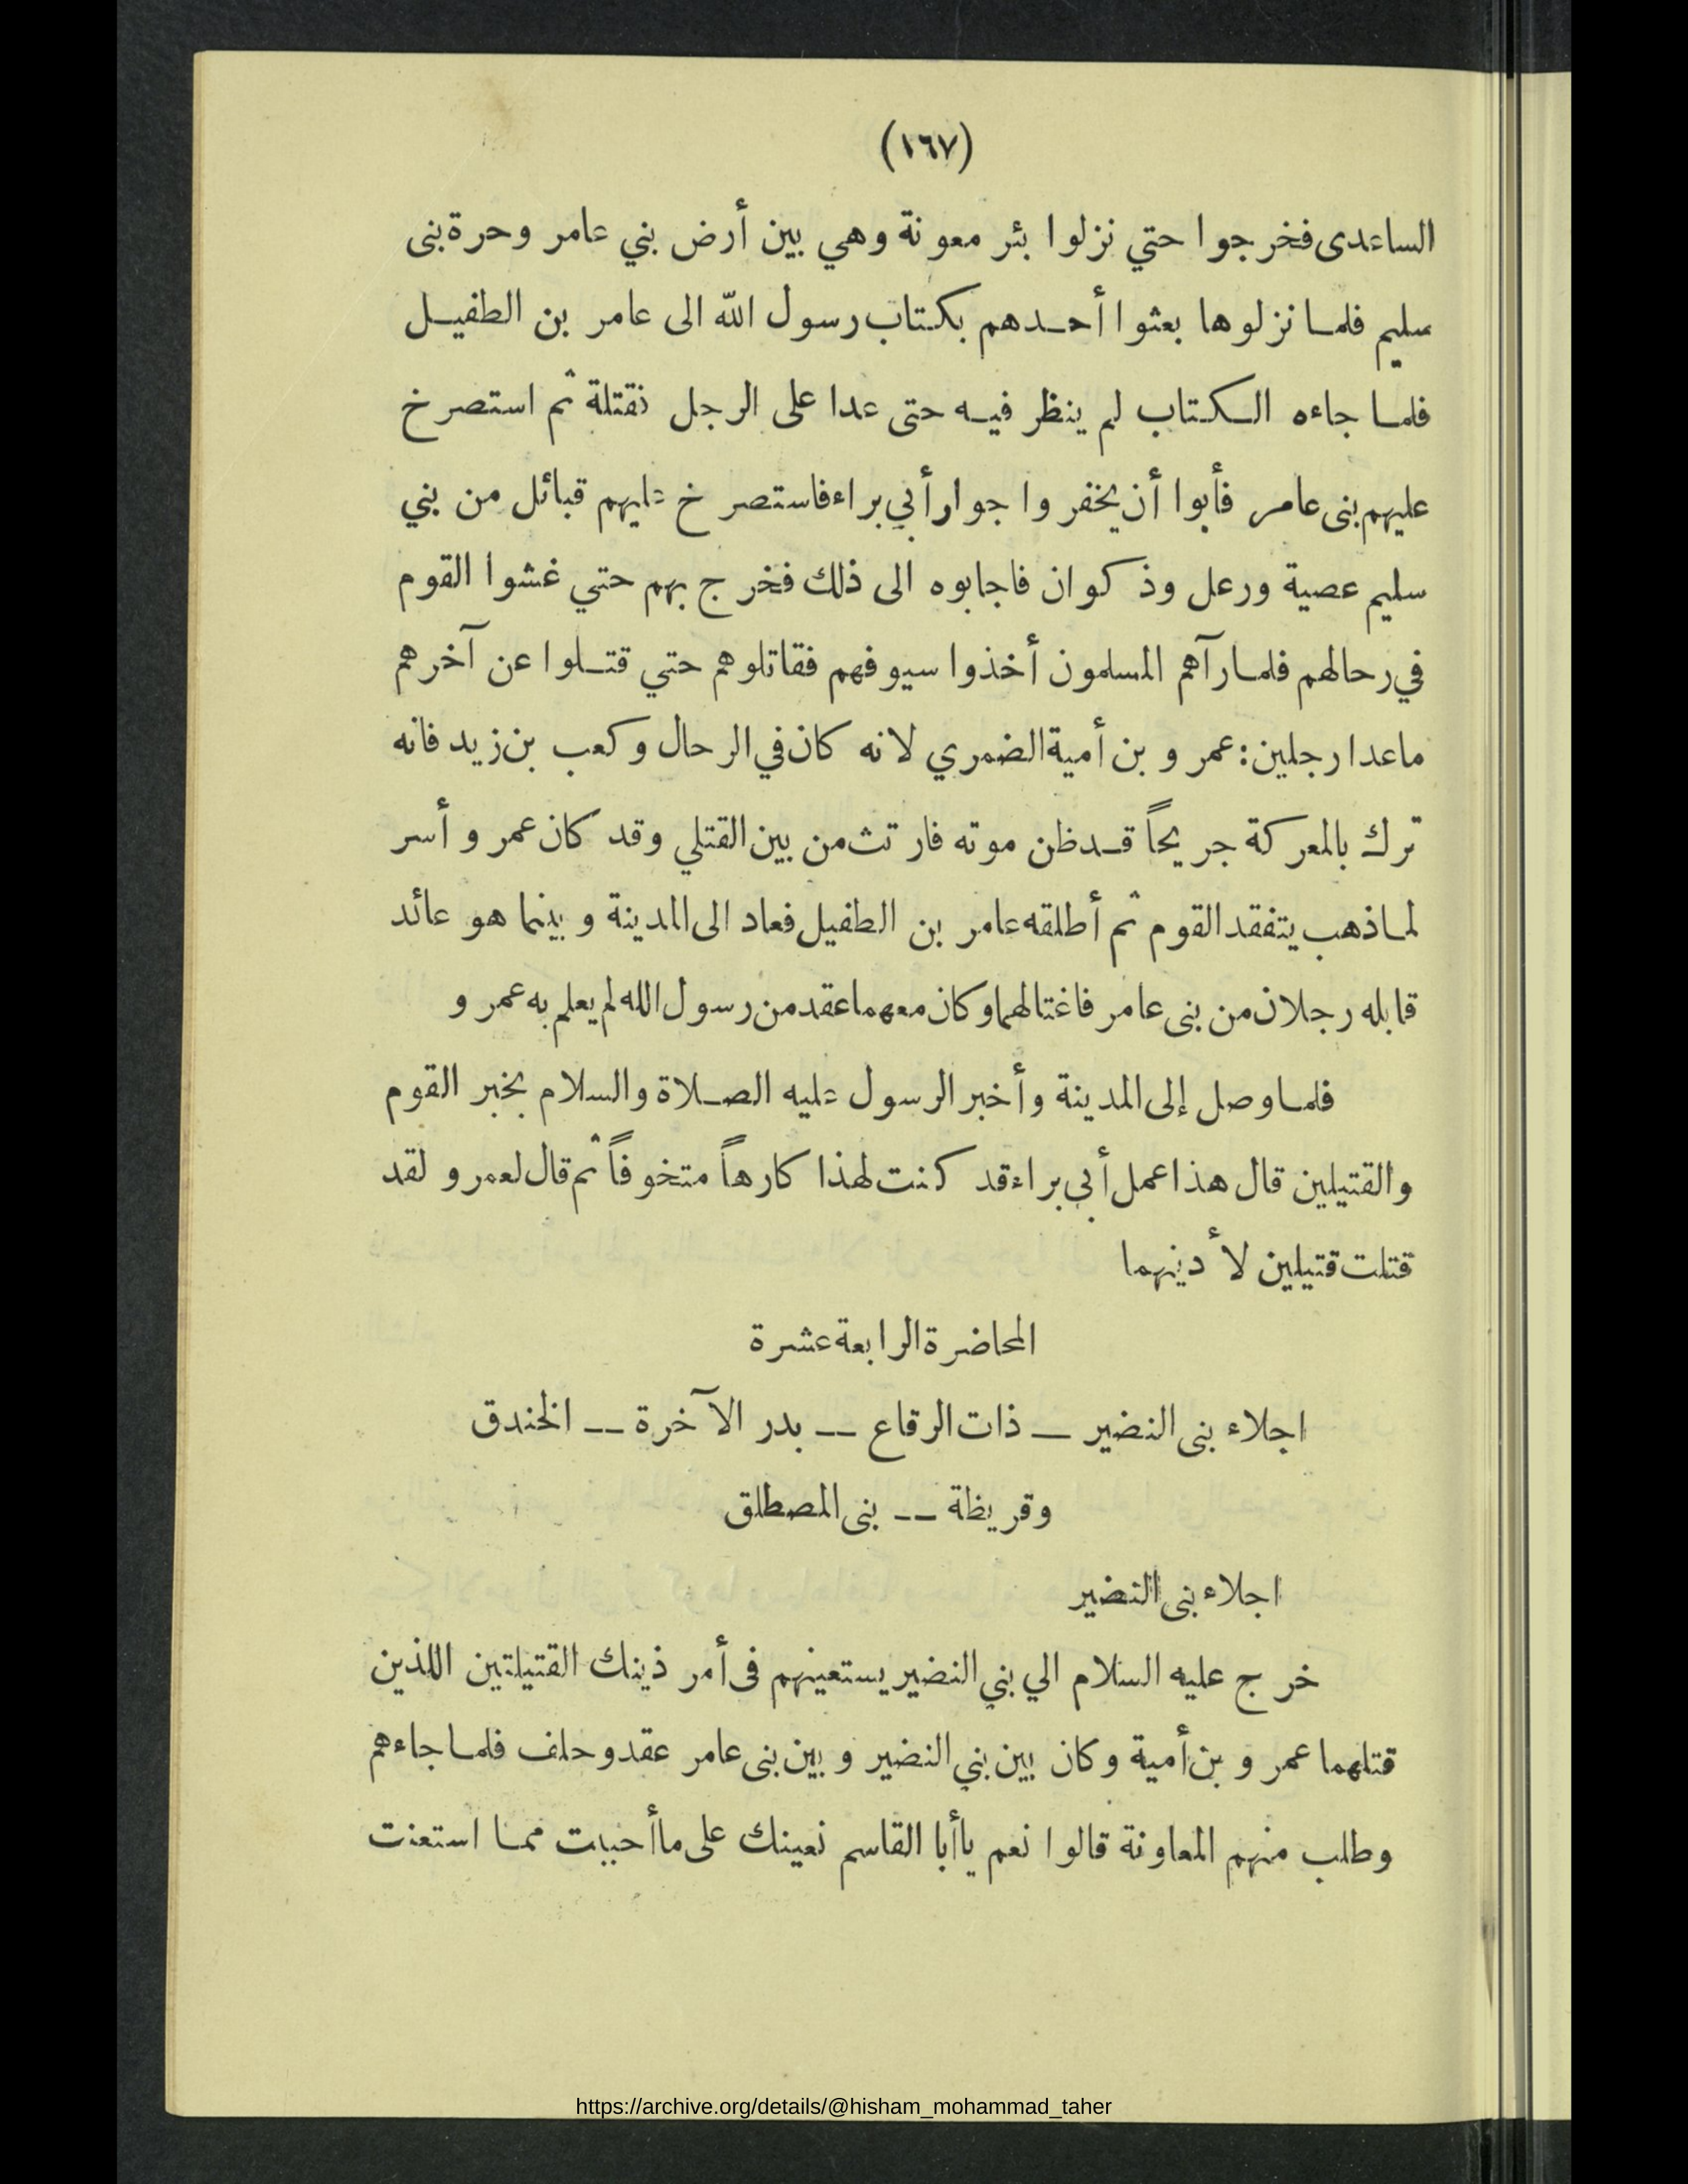 (١٦٧)
الساعدى فخرجوا حتي نزلوا بئر معونة وهي بين أرض بني عامر وحرة بنى
سليم فلما نزلوها بعثوا أحدهم بكتاب رسول الله الى عامر بن الطفيل
فلما جاءه الكتاب لم ينظر فيه حتى عدا على الرجل فقتلة ثم استصرخ
عليهم بنى عامر فأبوا أن يخفروا جوار أبي براء فاستصرخ عليهم قبائل من بني
سليم عصية ورعل وذكوان فاجابوه الى ذلك فخرج بهم حتي غشوا القوم
في رحالهم فلما رآهم المسلمون أخذوا سيوفهم فقاتلوهم حتي قتلوا عن آخرهم
ماعدا رجلين: عمرو بن أمية الضمري لانه كان في الرحال وكعب بن زيد فانه
ترك بالمعركة جريحاً قد ظن موته فارتث من بين القتلي وقد كان عمرو أسر
لما ذهب يتفقد القوم ثم أطلقه عامر بن الطفيل فعاد الى المدينة وبينما هو عائد
قابله رجلان من بنى عامر فاغتالهما وكان معهما عقد من رسول الله لم يعلم به عمرو
فلما وصل إلى المدينة وأخبر الرسول عليه الصلاة والسلام بخبر القوم
والقتيلين قال هذا عمل أبي براء قد كنت لهذا كارهاً متخوفاً ثم قال لعمرو لقد
قتلت قتيلين لأدينهما
المحاضرة الرابعة عشرة
اجلاء بنى النضير — ذات الرقاع — بدر الآخرة — الخندق
وقريظة — بنى المصطلق
اجلاء بنى النضير
خرج عليه السلام الي بني النضير يستعينهم فى أمر ذينك القتيلتين اللذين
قتلهما عمرو بن أمية وكان بين بني النضير وبين بنى عامر عقد وحلف فلما جاءهم
وطلب منهم المعاونة قالوا نعم ياأبا القاسم نعينك على ماأحببت مما استعنت
https://archive.org/details/@hisham_mohammad_taher